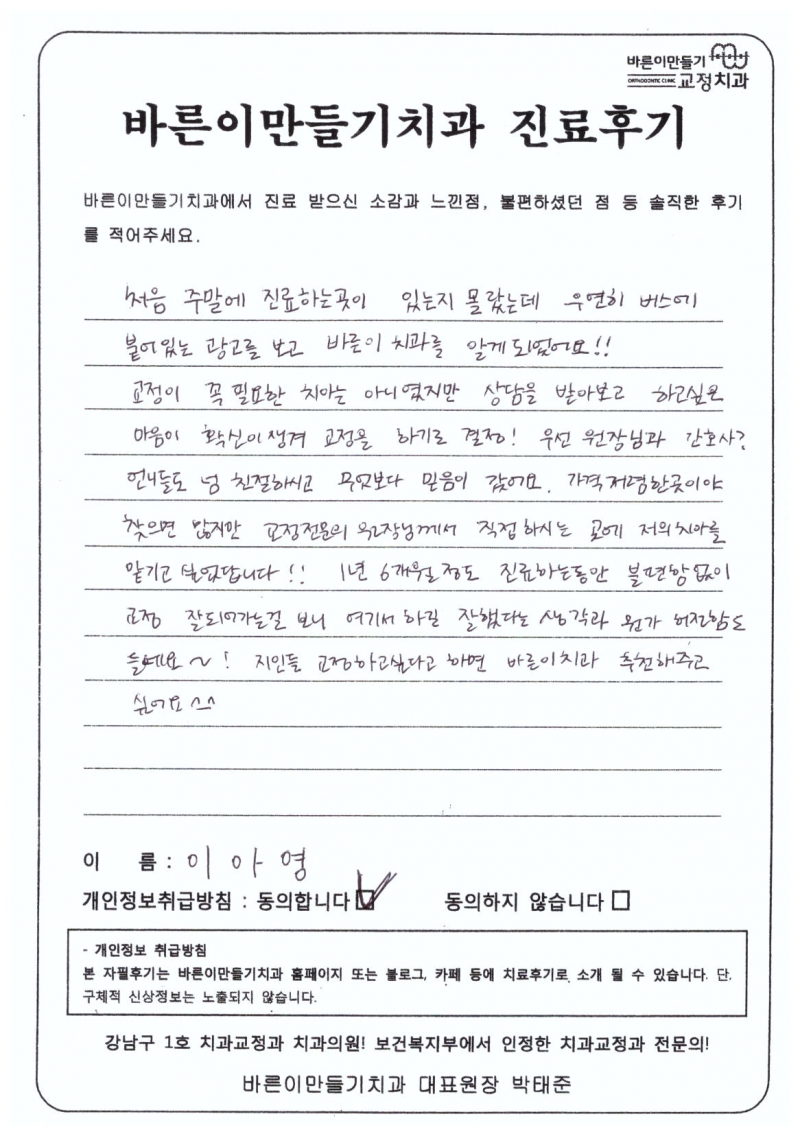 바른이만들기
ORTHODONTIC CLINIC 교정치과
바른이만들기치과 진료후기
바른이만들기치과에서 진료 받으신 소감과 느낀점, 불편하셨던 점 등 솔직한 후기
를 적어주세요.
처음 주말에 진료하는곳이 있는지 몰랐는데 우연히 버스에
붙어있는 광고를 보고 바른이치과를 알게되었어요!!
교정이 꼭 필요한 치아는 아니였지만 상담을 받아보고 하고싶은
마음이 확신이생겨 교정을 하기로 결정! 우선 원장님과 간호사?
언니들도 넘 친절하시고 무엇보다 믿음이 갔어요. 가격저렴한곳이야
찾으면 많지만 교정전문의 원장님께서 직접하시는 곳에 저의치아를
맡기고 싶었답니다!! 1년 6개월정도 진료하는동안 불편함없이
교정 잘되어가는걸 보니 여기서 하길 잘했다는 생각과 뭔가 허전함도
들네요~! 지인들 교정하고싶다고 하면 바른이치과 추천해주고
싶어요^^
이 름 : 이아영
개인정보취급방침 : 동의합니다 동의하지 않습니다
- 개인정보 취급방침
본 자필후기는 바른이만들기치과 홈페이지 또는 블로그, 카페 등에 치료후기로 소개 될 수 있습니다. 단,
구체적 신상정보는 노출되지 않습니다.
강남구 1호 치과교정과 치과의원! 보건복지부에서 인정한 치과교정과 전문의!
바른이만들기치과 대표원장 박태준